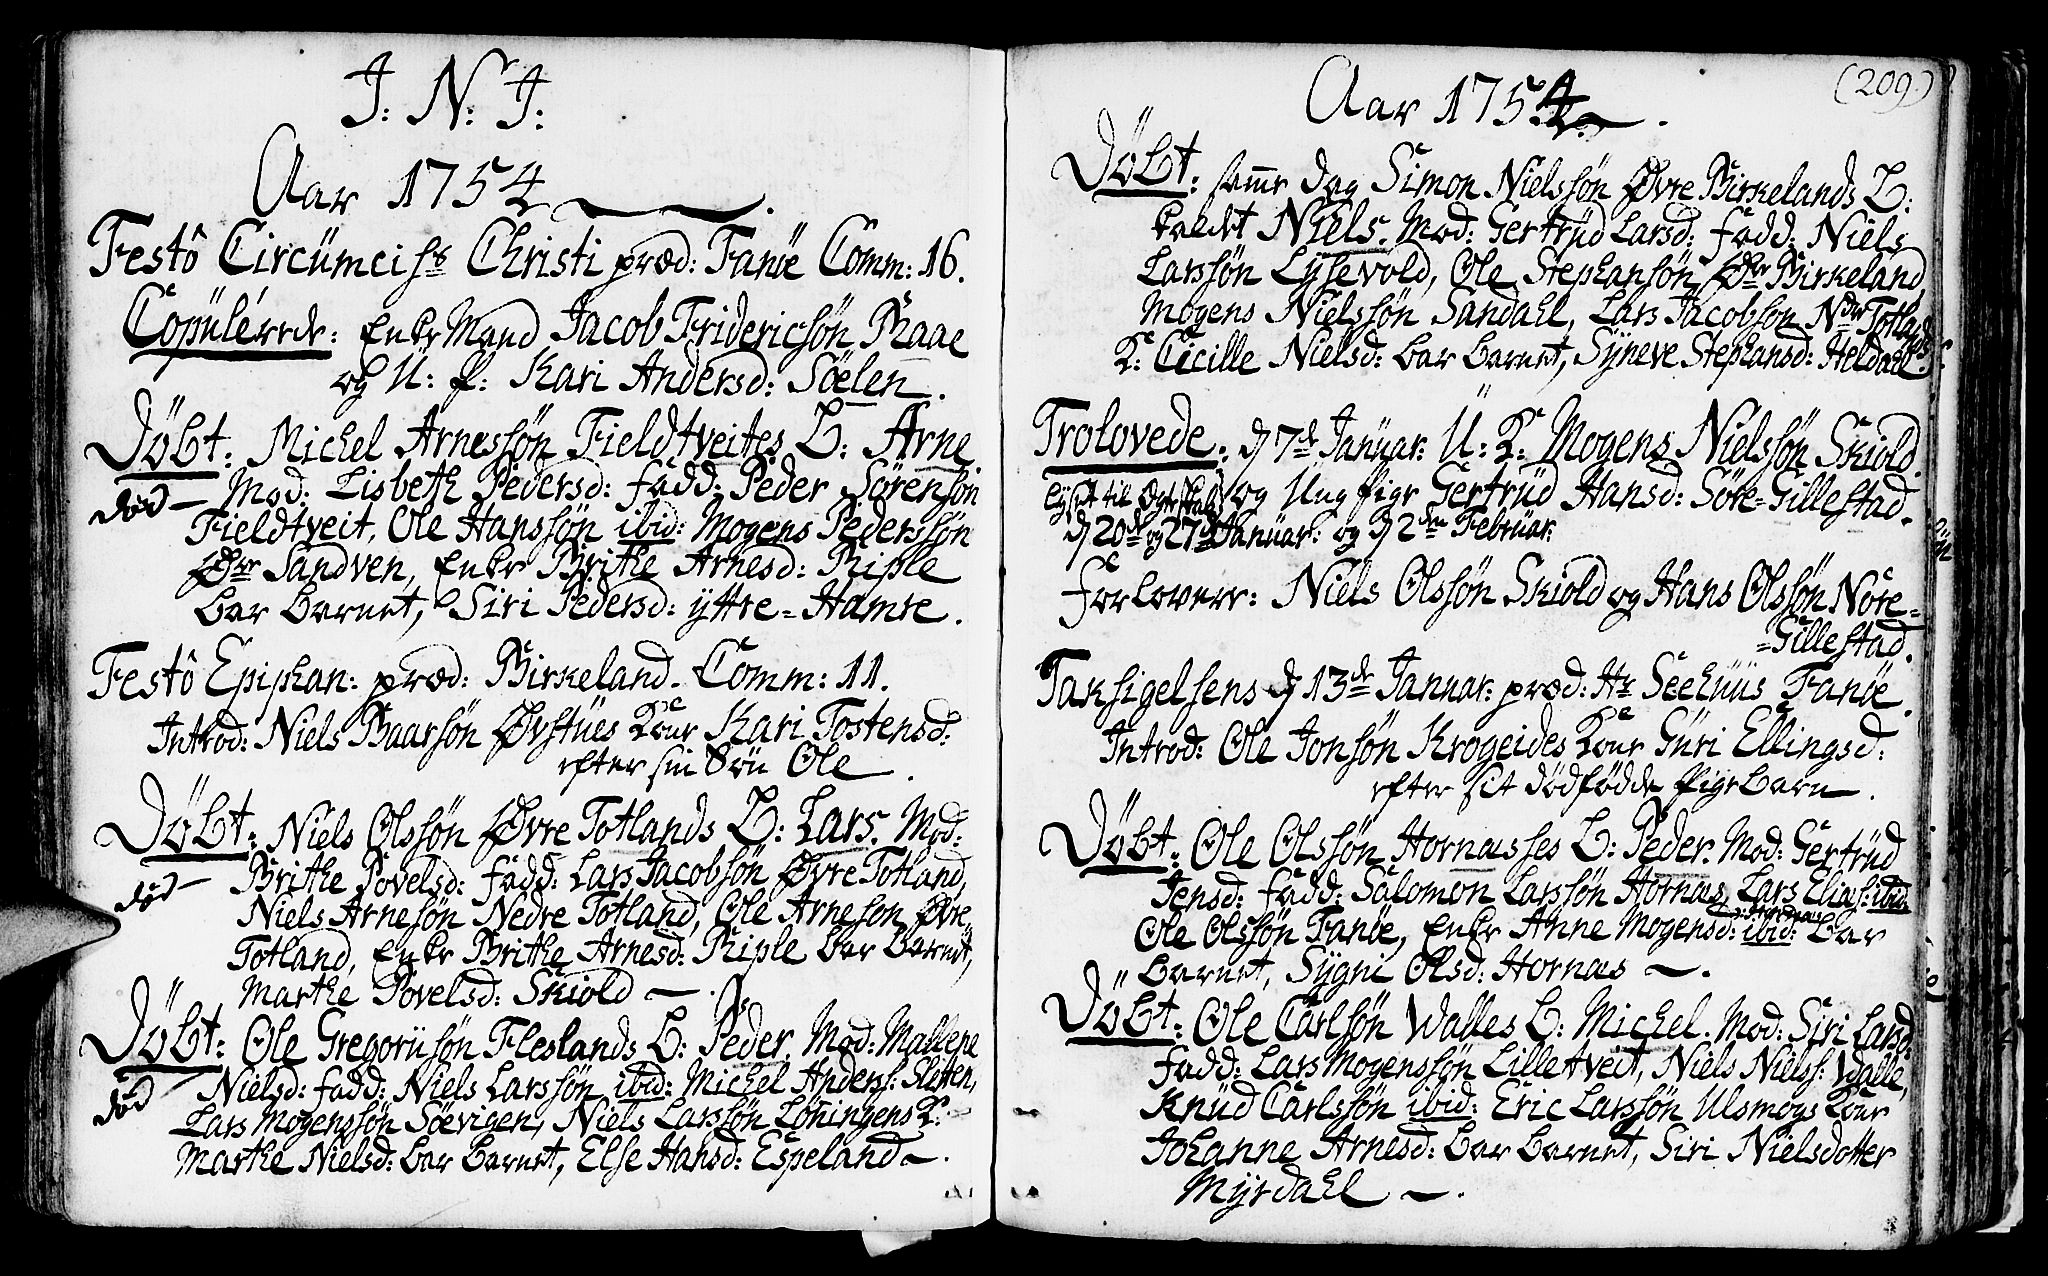 J: N: J:
Aar 1754
Festô Circumcis: Christi præd: Fanöe Comm: 16.
Copulerede: Enke Mand Jacob Fridericsön Raae
og U: P: Kari Andersd: Söelen.
Döbt: Michel Arnessön Fieldtveites B: Arne
Mod: Lisbeth Pedersd: Fadd: Peder Sörensön
död —
Fieldtveit, Ole Hanssön ibid: Mogens Pederssön
Øvr Sandven, Enke Brithe Arnesd: Riple
bar Barnet, Siri Pedersd: yttre-Hamre.
Festô Epiphan: præd: Birkeland. Comm: 11.
Introd: Niels Baarsön Øvstües Kone Kari Tostensd:
efter sin Sön Ole.
Döbt: Niels Olssön Øvre Totlands B: Lars. Mod:
Brithe Povelsd: Fadd: Lars Jacobsön Øvre Totland,
död —
Niels Arnesön Nedre Totland, Ole Arneson Øvre
Totland, Enke Brithe Arnesd: Riple bar Barnet,
Marthe Povelsd: Skiold —.
Döbt: Ole Gregoriisön Fleslands B: Peder. Mod: Mallene
Nielsd: Fadd: Niels Larssön ibid: Michel Anders: Sletten,
död
Lars Mogenssön Söevigen, Niels Larssön Löningens K:
Marthe Nielsd: bar Barnet, Else Hansd: Espeland —.
(209)
Aar 1754.
Döbt: samme dag Simon Nielssön Øvre Birkelands B:
kaldet Niels. Mod: Gertrud Larsd: Fadd: Niels
Larssön Lysevold, Ole Stephansön Øvr Birkeland,
Mogens Nielssön Sandahl, Lars Jacobson Nedr Totlands
K: Cicille Nielsd: bar Barnet, Syneve Stephansd: Heldahl.
Trolovede: d 7de Januar: U: K: Mogens Nielssön Skiold.
og Ung Pige Gertrud Hansd: Söre-Gillestad.
lyst til Ægteskab
d 20de og 27de Januar: og d 2den Februar:
Forlovere: Niels Olssön Skiold og Hans Olssön Nöre-
=Gillestad.
Taksigelsens d 13de Januar: præd: Hr Seehuus Fanöe.
Introd: Ole Jonsön Krogeides Kone Guri Ellingsd:
efter sit dödfödde Pige Barn —.
Döbt: Ole Olssön Hornæsses B: Peder. Mod: Gertrud
Jensd: Fadd: Salomon Larssön Hornæs, Lars Elias: ibid:
Ole Olssön Fanöe, Enke Anne Mogensd: ibid: bar
Barnet, Sygni Olsd: Hornæs —.
Döbt: Ole Carlsön Walles B: Michel. Mod: Siri Larsd:
Fadd: Lars Mogenssön Lilletveit, Niels Niels: Walle,
Knud Carlssön ibid: Eric Larssön Ulsmogs Kone
Johanne Arnesd: bar Barnet, Siri Nielsdotter
Myrdahl —.